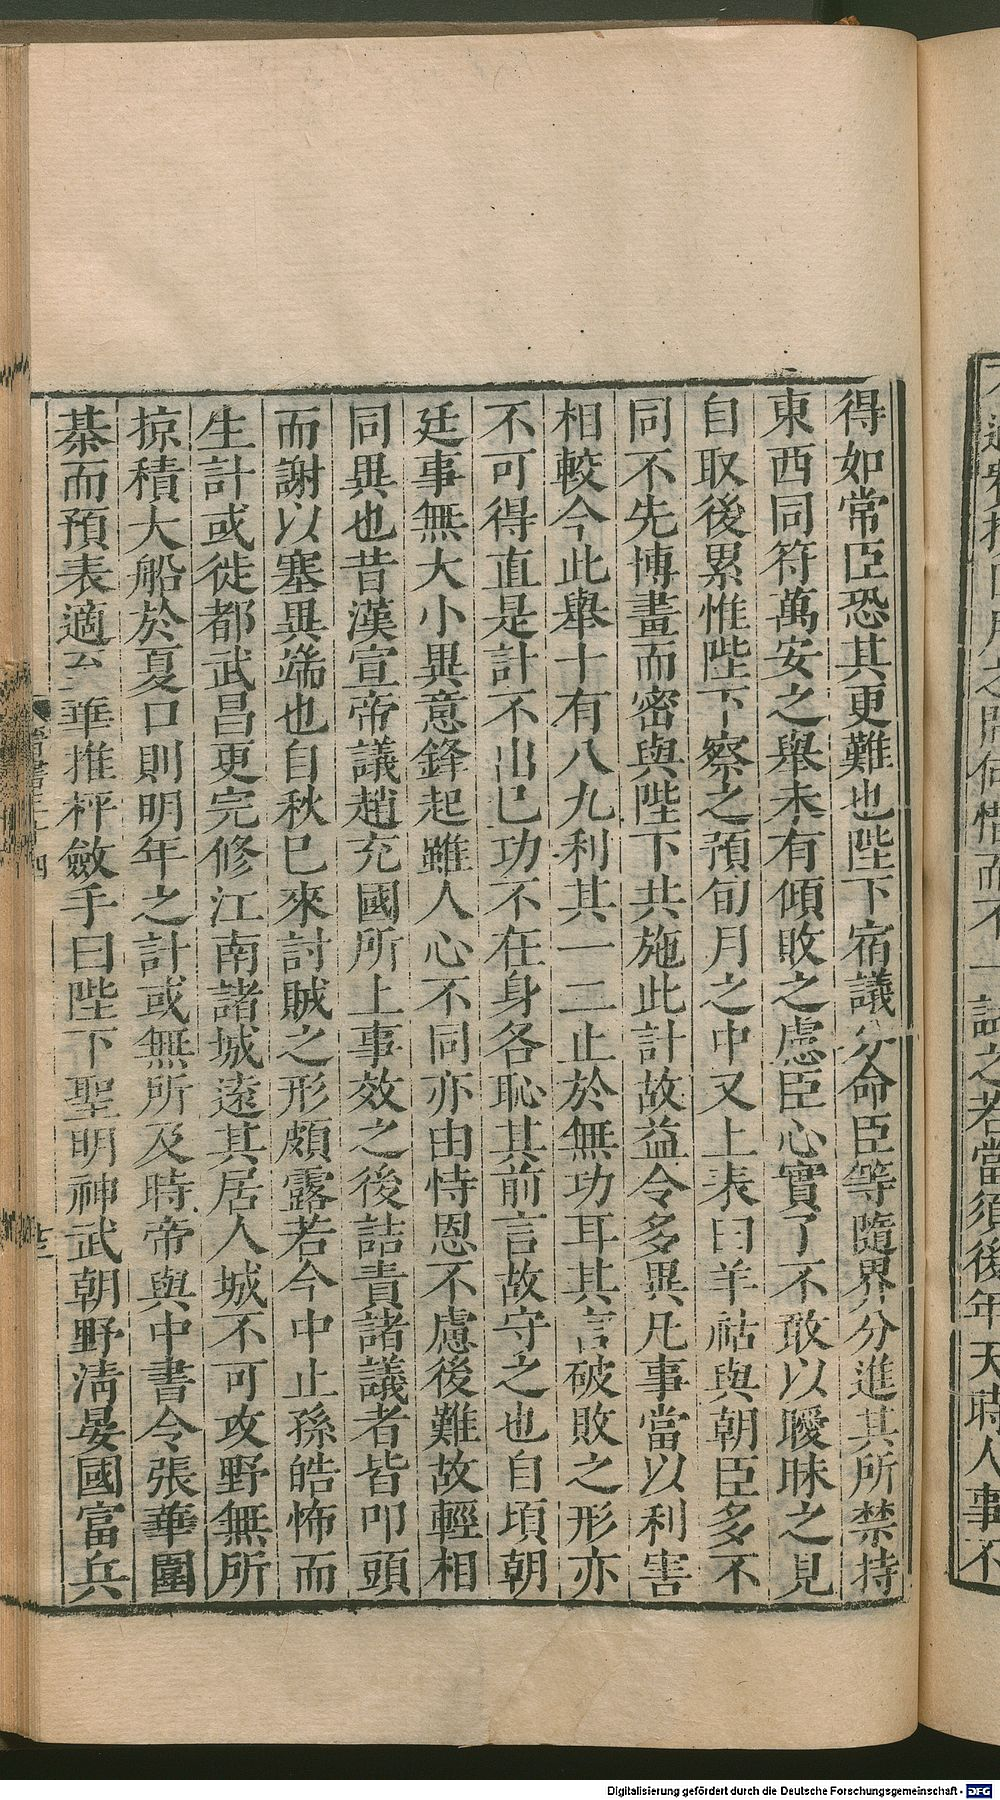 得如常臣恐其更難也陛下宿議分命臣等隨界分進其所禁持
東西同符萬安之舉未有傾敗之慮臣心實了不敢以曖昧之見
自取後累惟陛下察之預旬月之中又上表曰羊祜與朝臣多不
同不先博畫而密與陛下共施此計故益令多異凡事當以利害
相較今此舉十有八九利其一二止於無功耳其言破敗之形亦
不可得直是計不出已功不在身各恥其前言故守之也自頃朝
廷事無大小異意鋒起雖人心不同亦由恃恩不慮後難故輕相
同異也昔漢宣帝議趙充國所上事效之後詰責諸議者皆叩頭
而謝以塞異端也自秋已來討賊之形頗露若今中止孫皓怖而
生計或徙都武昌更完修江南諸城遠其居人城不可攻野無所
掠積大船於夏口則明年之計或無所及時帝與中書令張華圍
棊而預表適至華推枰斂手曰陛下聖明神武朝野淸晏國富兵
Digitalisierung gefördert durch die Deutsche Forschungsgemeinschaft - DFG